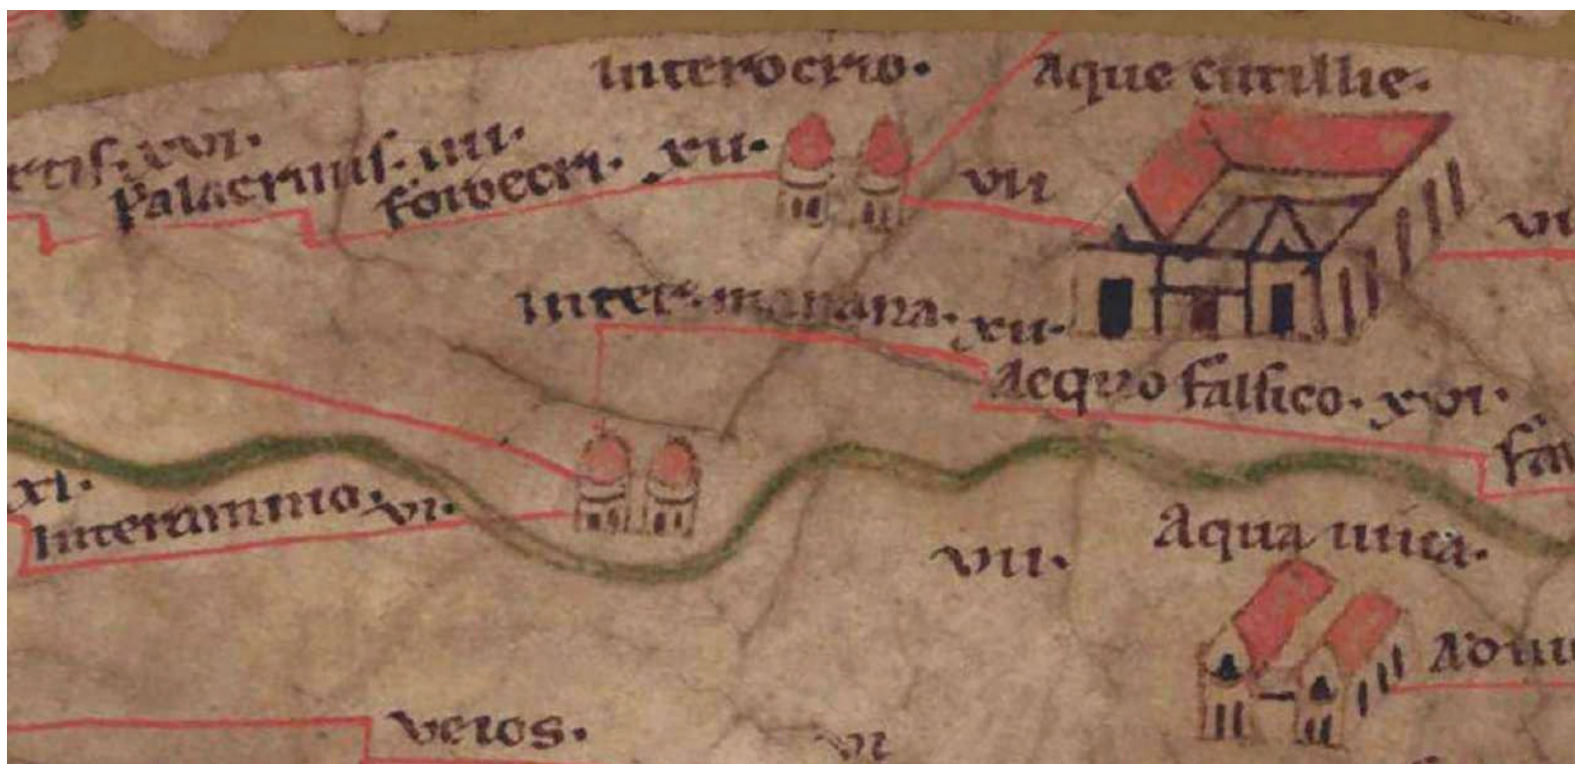 Interocrio.
Aque cutillie.
xvi.
Palacrinis. iiii.
foroecri. xii.
vii
Inter manana. xii.
Aequo falsico. xvi.
xi.
Interamnio. vi.
vii.
Aqua viva.
veios.
vi